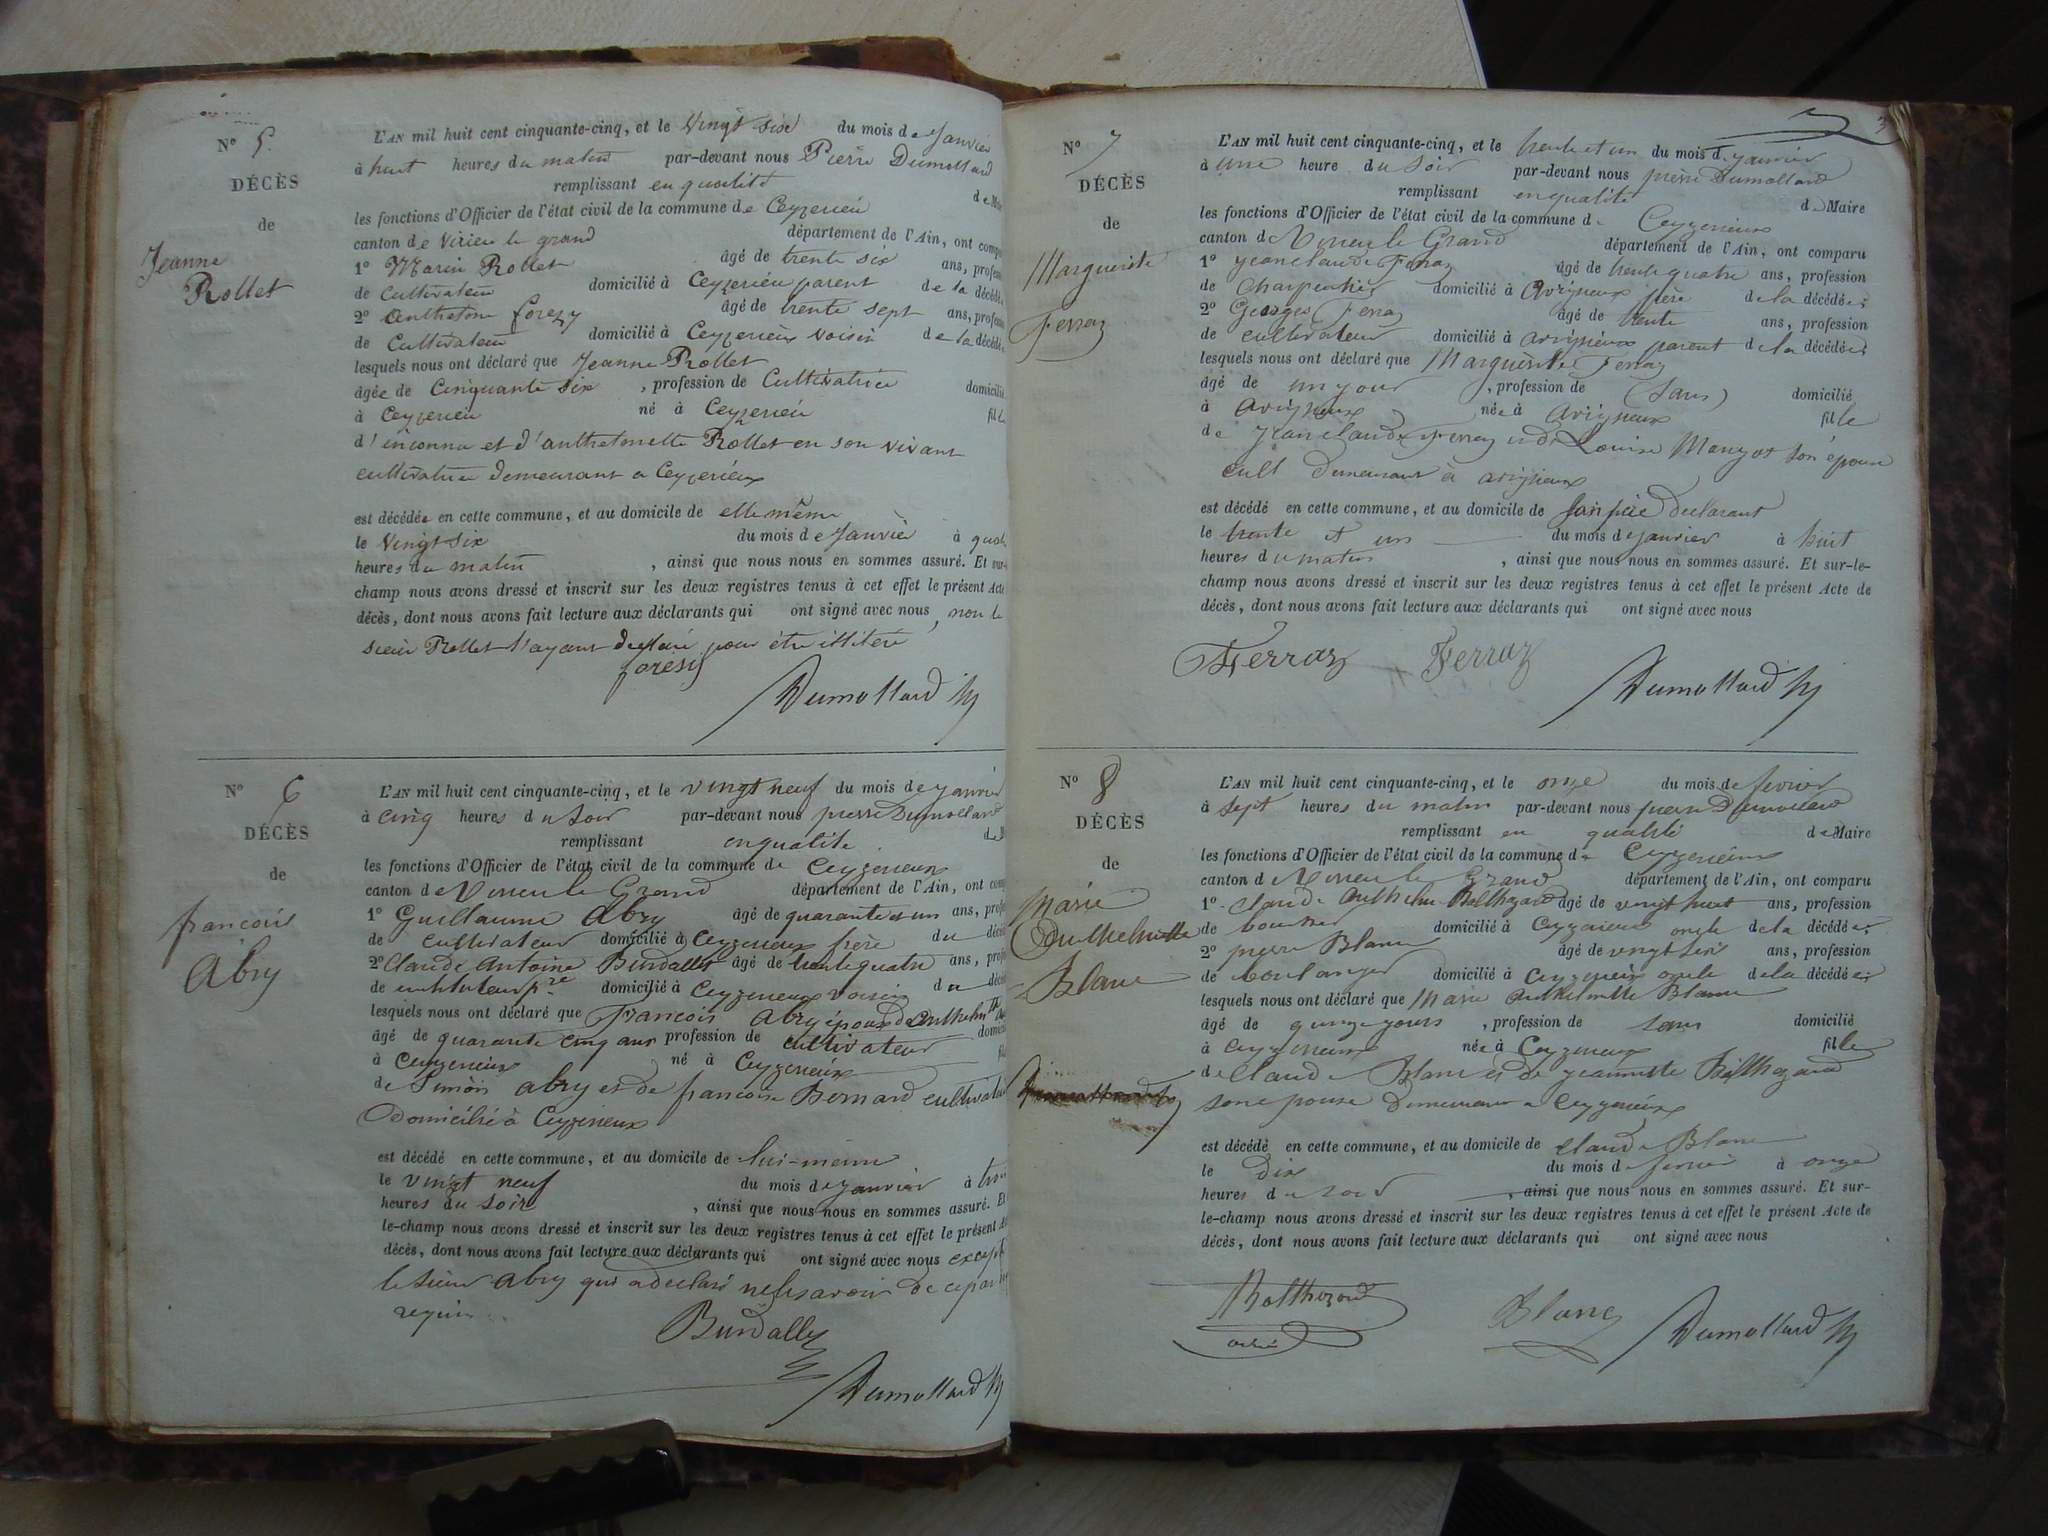 N° 5.
DÉCÈS
de
Jeanne
Rollet
L'AN mil huit cent cinquante-cinq, et le Vingt sixe du mois de Janvier
à huit heures du matin par-devant nous Pierre Dumollard
remplissant en qualité de
les fonctions d'Officier de l'état civil de la commune de Ceyzerieu
canton de Virieu le grand département de l'Ain, ont
1° Marin Rollet âgé de trente six ans,
de Cultivateur domicilié à Ceyzerieu parent de la
2° Anthelme forezy âgé de trente sept ans,
de Cultivateur domicilié à Ceyzerieux voisin de la
lesquels nous ont déclaré que Jeanne Rollet
âgée de Cinquante six , profession de Cultivatrice
à Ceyzerieu né à Ceyzerieu
d'inconnu et d'anthelmette Rollet en son vivant
cultivatrice demeurant a Ceyzerieux
est décédée en cette commune, et au domicile de elle même
le Vingt six du mois de Janvier à
heures du matin , ainsi que nous nous en sommes assuré. Et
champ nous avons dressé et inscrit sur les deux registres tenus à cet effet le présent Acte
décès, dont nous avons fait lecture aux déclarants qui ont signé avec nous, non le
sieur Rollet l'ayant déclaré pour être illitéré
foresy
Dumollard
N° 6
DÉCÈS
de
françois
Abry
L'AN mil huit cent cinquante-cinq, et le vingt neuf du mois de janvier
à cinq heures du soir par-devant nous pierre Dumollard
remplissant en qualité
les fonctions d'Officier de l'état civil de la commune de Ceyzerieux
canton de Virieu le Grand département de l'Ain, ont
1° Guillaume Abry âgé de quarante et un ans,
de cultivateur domicilié à Ceyzerieux frère du
2° Claude Antoine Burdallet âgé de trente quatre ans,
de instituteur domicilié à Ceyzerieux voisin du
lesquels nous ont déclaré que François Abry époux de
âgé de quarante cinq ans profession de cultivateur
à Ceyzerieux né à Ceyzerieux
de Simon abry et de françoise Bernard
Domicilié à Ceyzerieux
est décédé en cette commune, et au domicile de lui-même
le vingt neuf du mois de janvier à
heures du soir , ainsi que nous nous en sommes assuré. Et
le-champ nous avons dressé et inscrit sur les deux registres tenus à cet effet le présent
décès, dont nous avons fait lecture aux déclarants qui ont signé avec nous
le sieur Abry qui a déclaré ne le savoir de ce
requis
Burdallet
Dumollard
3
N° 7
DÉCÈS
de
Marguerite
Ferraz
L'AN mil huit cent cinquante-cinq, et le trente et un du mois de janvier
à une heure du soir par-devant nous pierre Dumollard
remplissant en qualité de Maire
les fonctions d'Officier de l'état civil de la commune de Ceyzerieux
canton de Virieu le Grand département de l'Ain, ont comparu
1° jean claude Ferraz âgé de trente quatre ans, profession
de Charpentier domicilié à Avrigneux père de la décédée;
2° Georges Ferraz âgé de trente ans, profession
de cultivateur domicilié à avrigneux parent de la décédée;
lesquels nous ont déclaré que Marguerite Ferraz
âgé de un jour , profession de (sans) domicilié
à avrigneux née à avrigneux fille
de jean claude Ferraz et de Louise son épouse
cult demeurant à avrigneux
est décédé en cette commune, et au domicile de son père déclarant
le trente et un du mois de janvier à huit
heures du matin , ainsi que nous nous en sommes assuré. Et sur-le-
champ nous avons dressé et inscrit sur les deux registres tenus à cet effet le présent Acte de
décès, dont nous avons fait lecture aux déclarants qui ont signé avec nous
Ferraz Ferraz
Dumollard
N° 8
DÉCÈS
de
Marie
Anthelmette
Blanc
L'AN mil huit cent cinquante-cinq, et le onze du mois de fevrier
à sept heures du matin par-devant nous pierre Dumollard
remplissant en qualité de Maire
les fonctions d'Officier de l'état civil de la commune de Ceyzerieux
canton de Virieu le Grand département de l'Ain, ont comparu
1° Claude Anthelme Balthazard âgé de vingt huit ans, profession
de domicilié à Ceyzerieux oncle de la décédée;
2° pierre Blanc âgé de vingt six ans, profession
de boulanger domicilié à Ceyzerieux oncle de la décédée;
lesquels nous ont déclaré que Marie Anthelmette Blanc
âgé de quinze jours , profession de sans domicilié
à ceyzerieux née à Ceyzerieux fille
de claude Blanc et de jeannette Balthazard
son epouse demeurant a Ceyzerieux
est décédé en cette commune, et au domicile de Claude Blanc
le Dix du mois de fevrier à onze
heures du soir , ainsi que nous nous en sommes assuré. Et sur-
le-champ nous avons dressé et inscrit sur les deux registres tenus à cet effet le présent Acte de
décès, dont nous avons fait lecture aux déclarants qui ont signé avec nous
Balthazard
Blanc Dumollard